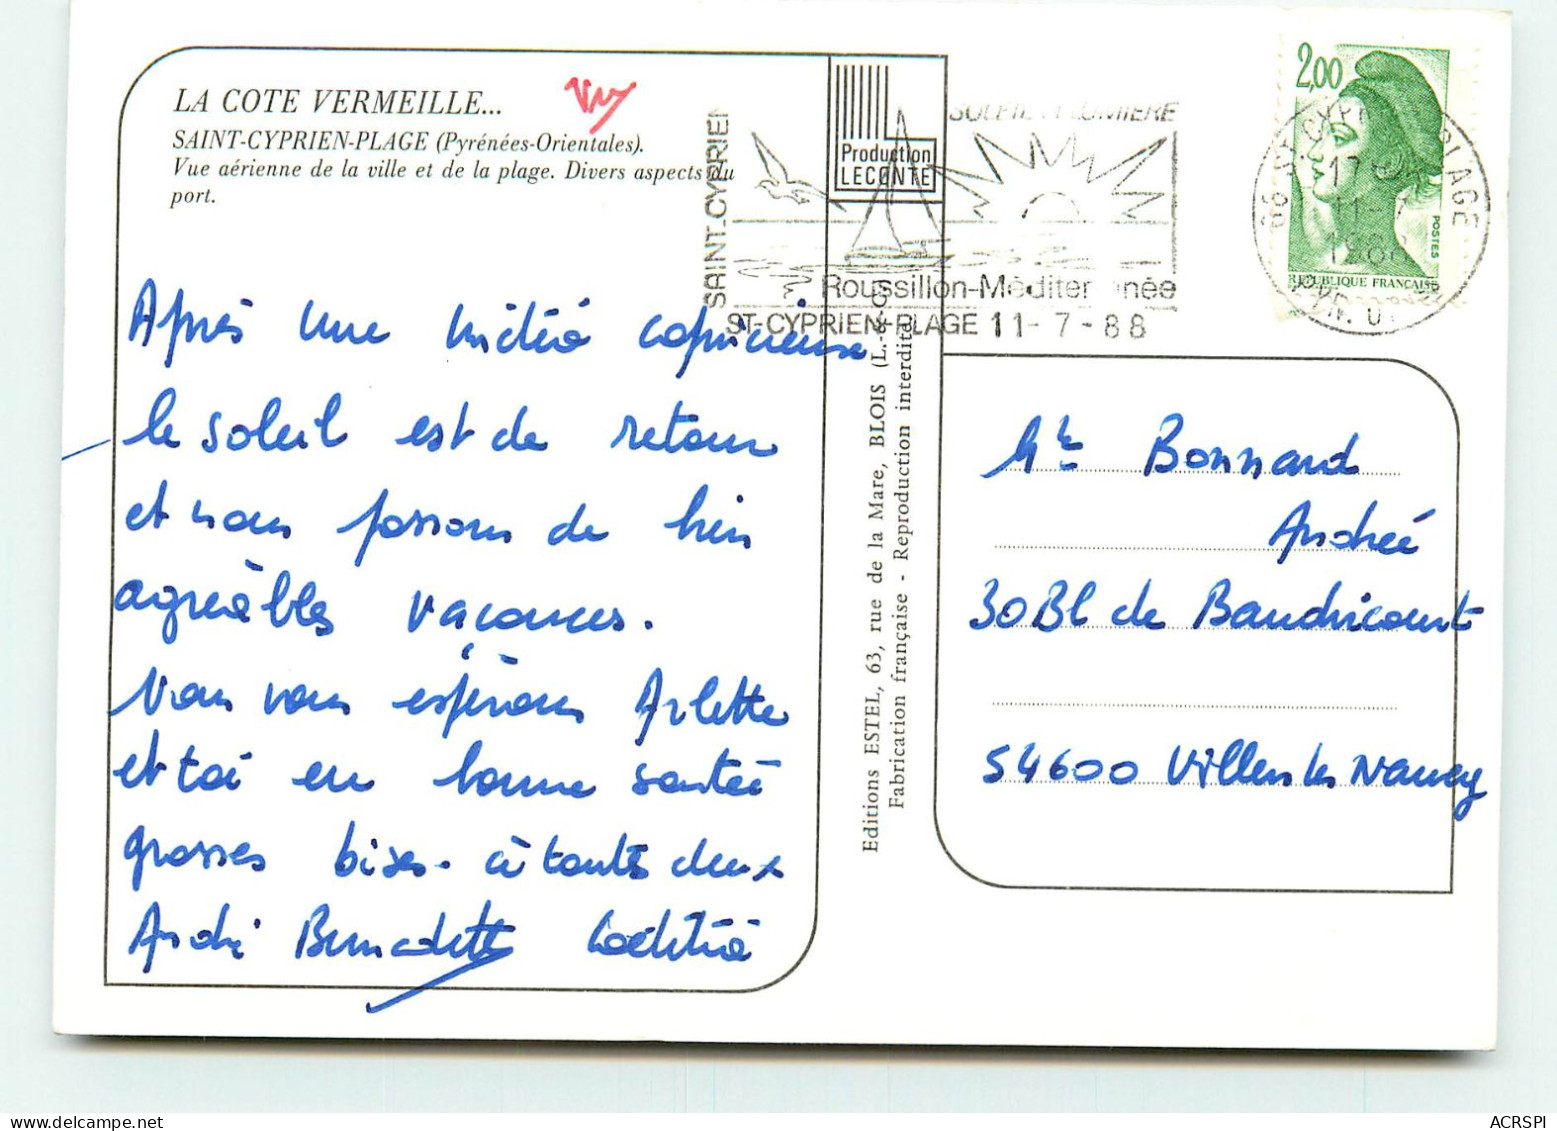 LA COTE VERMEILLE...
SAINT-CYPRIEN-PLAGE (Pyrénées-Orientales).
Vue aérienne de la ville et de la plage. Divers aspects du
port.
Après une météo capricieuse
le soleil est de retour
et nous passons de bien
agréables vacances.
Nous vous espérons Arlette
et toi en bonne santée
grosses bises. à toute deux
André Bernadette Laëtitia
Production
LECONTE
SAINT-CYPRIEN
SOLEIL LUMIERE
Roussillon-Méditerranée
ST-CYPRIEN-PLAGE 11-7-88
2,00
POSTES
REPUBLIQUE FRANÇAISE
66 ST CYPRIEN PLAGE
17
11-7
1988
PYR. OR.
Editions ESTEL, 63, rue de la Mare, BLOIS (L.-&-C.)
Fabrication française - Reproduction interdite
Bonnard
Andrée
30 Bl de Baudricourt
54600 Villers les Nancy
ACRSPI